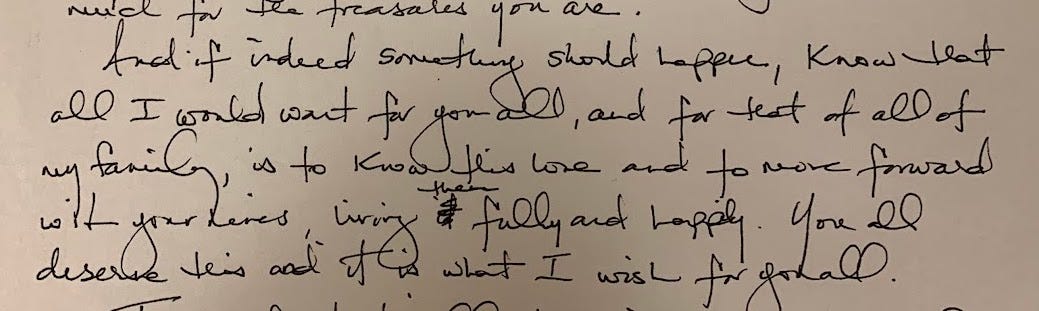 much for the treasures you are.
And if indeed something should happen, know that
all I would want for you all, and for that of all of
my family, is to know this love and to move forward
with your lives, living them fully and happily. You all
deserve this and it is what I wish for you all.